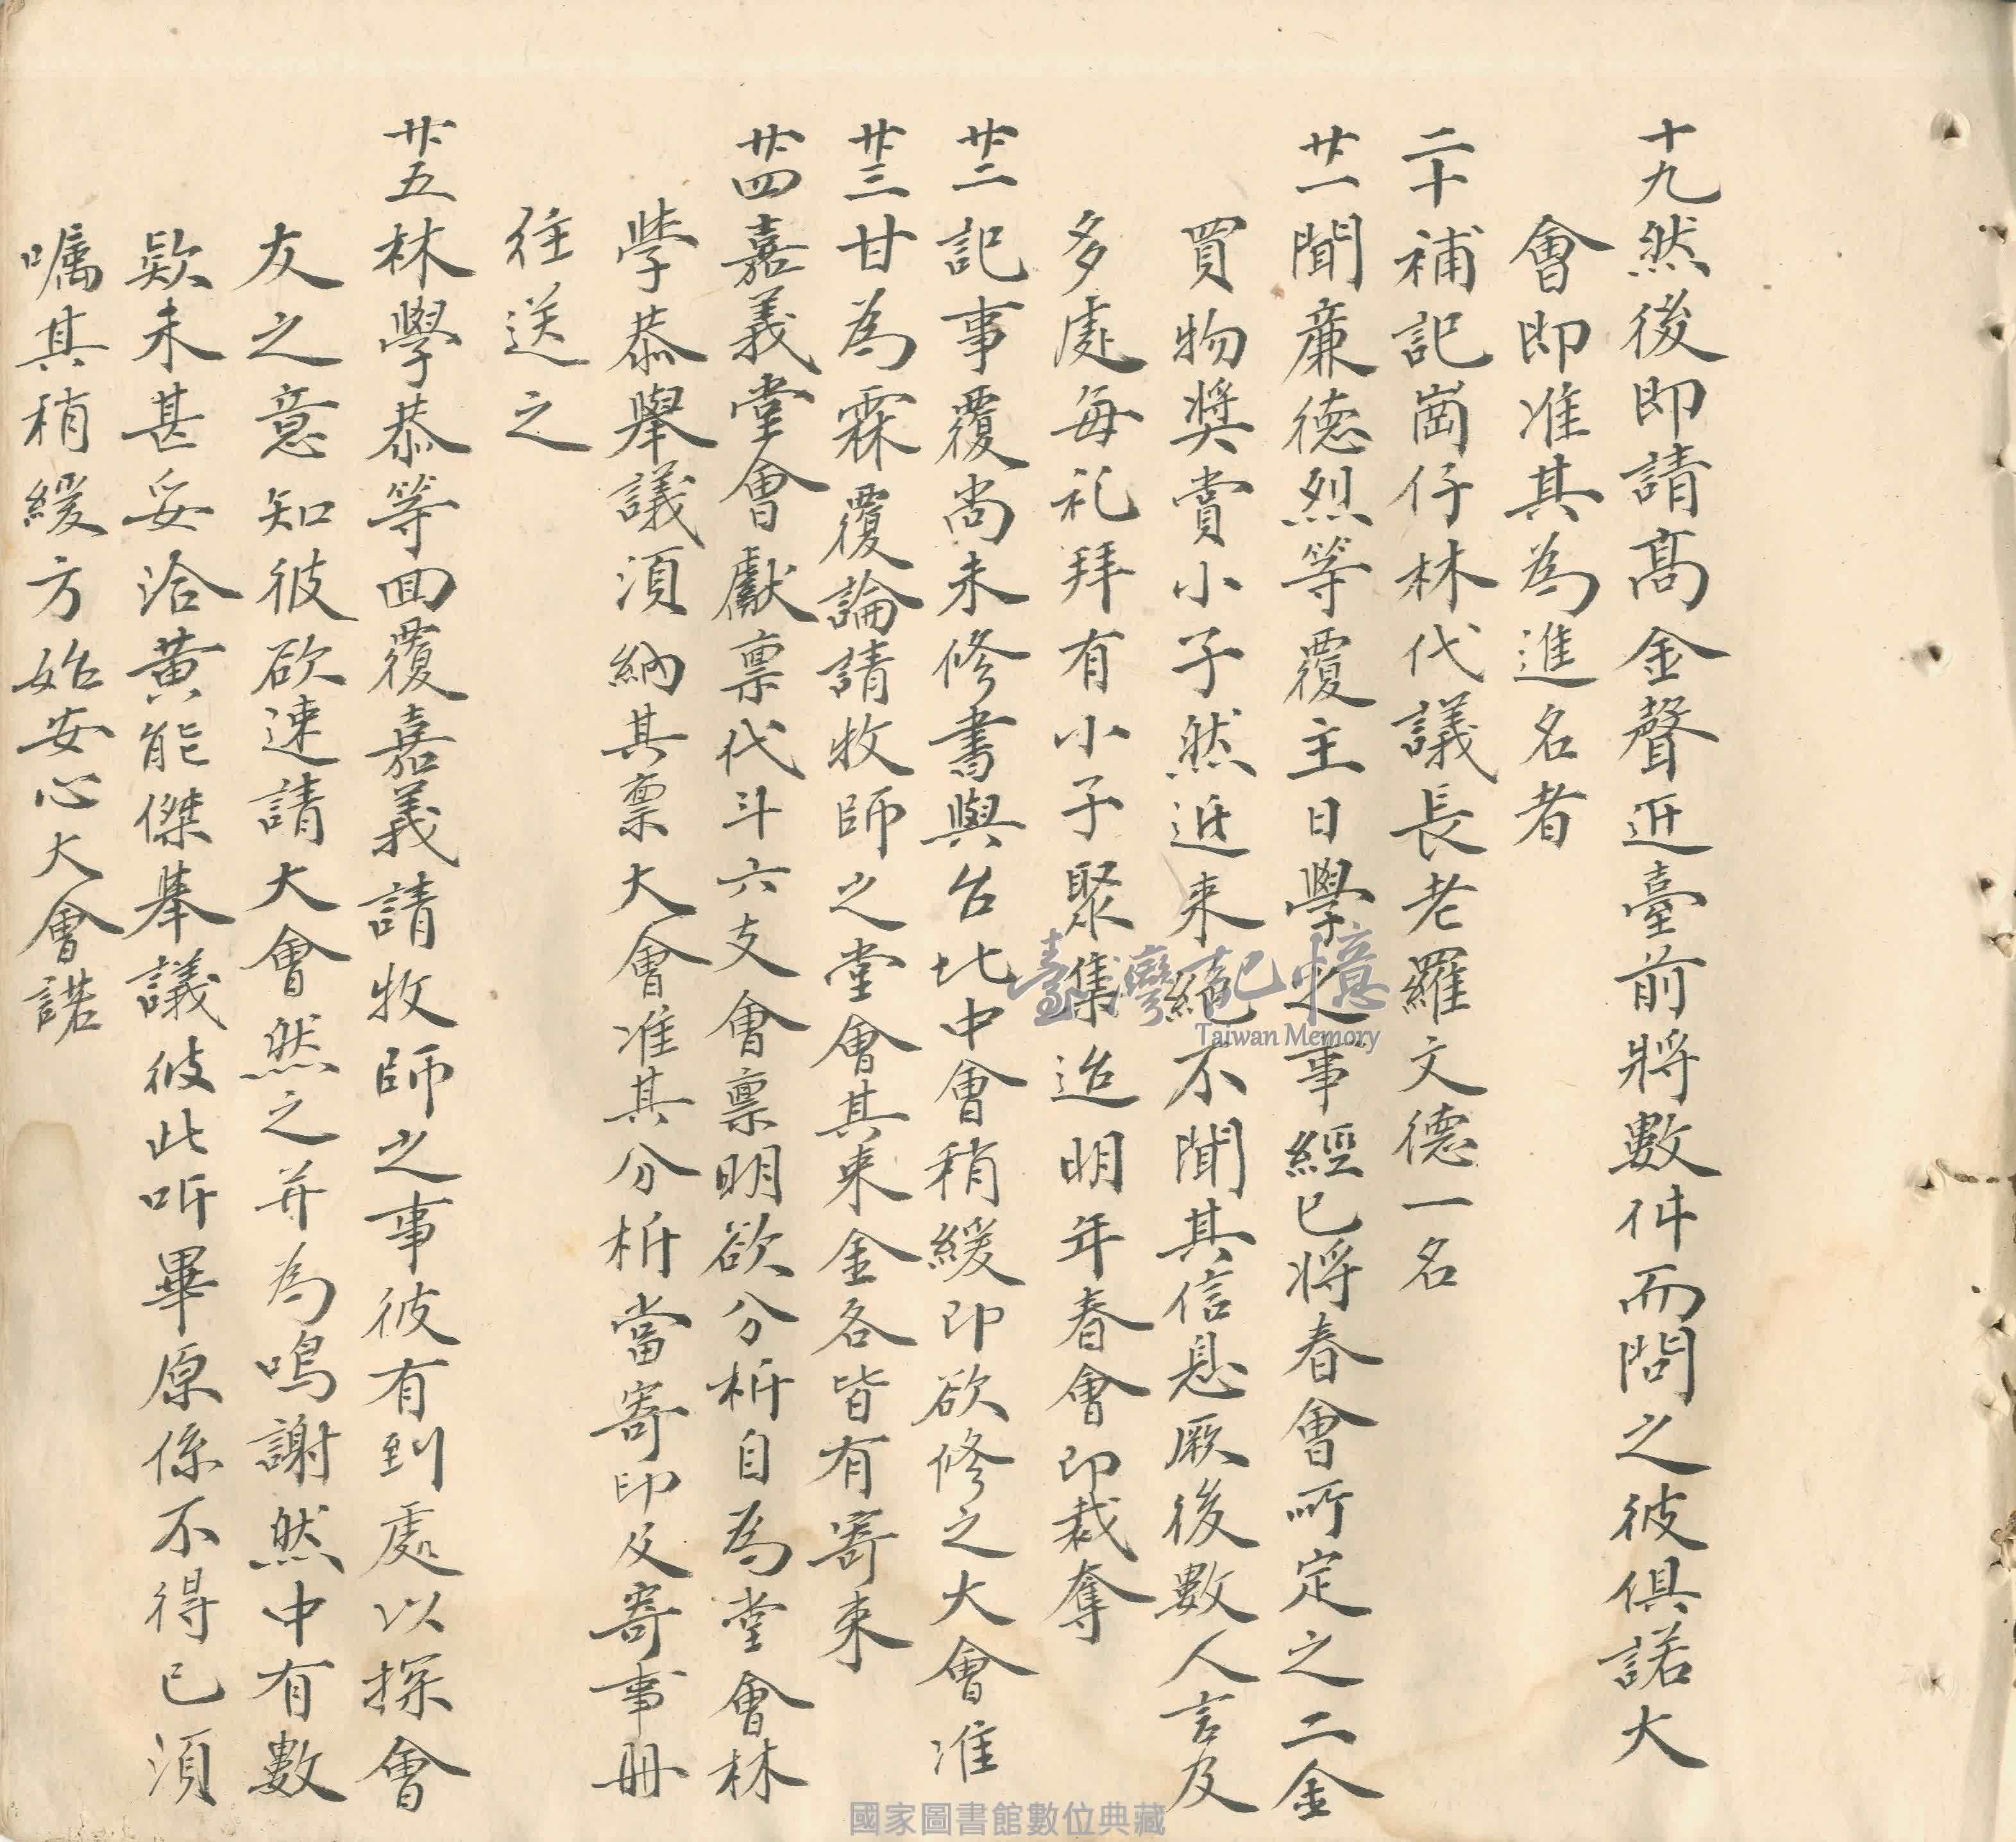 十九然後即請高金聲近臺前將數件而問之彼俱諾大
會即准其為進名者
二十補記崗仔林代議長老羅文德一名
廿一聞廉德烈等覆主日學之事經已將春會所定之二金
買物獎賞小子然近来絕不聞其信息厥後數人言及
多處每礼拜有小子聚集迨明年春會即裁奪
廿二記事覆尚未修書與台北中會稍緩即欲修之大會准
廿三甘為霖覆論請牧師之堂會其来金各皆有寄来
廿四嘉義堂會獻禀代斗六支會禀明欲分析自為堂會林
學恭舉議須納其禀大會准其分析當寄印及寄事冊
往送之
廿五林學恭等回覆嘉義請牧師之事彼有到處以探會
友之意知彼欲速請大會然之并為鳴謝然中有數
欵未甚妥洽黃能傑舉議彼此听畢原係不得已須
囑其稍緩方始安心大會諾
臺灣記憶
Taiwan Memory
國家圖書館數位典藏